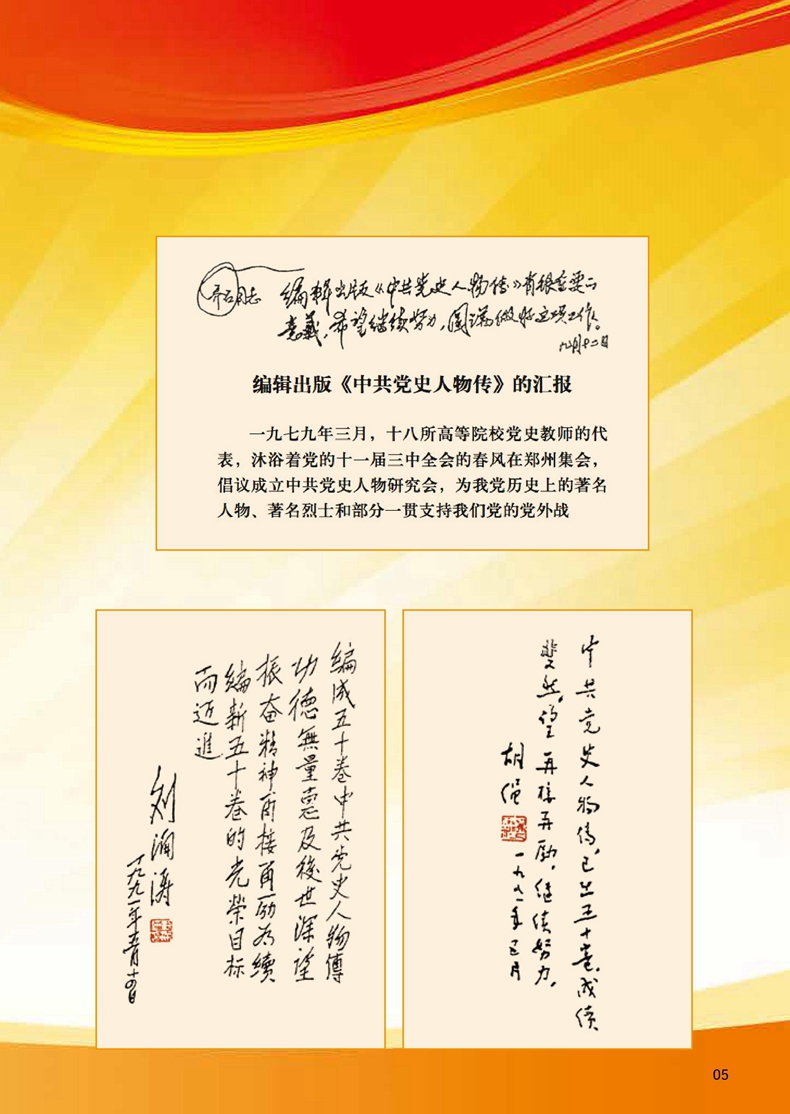 乔石同志 编辑出版《中共党史人物传》有很重要的
意义，希望继续努力，圆满做好这项工作。
九月十二日
编辑出版《中共党史人物传》的汇报
一九七九年三月，十八所高等院校党史教师的代
表，沐浴着党的十一届三中全会的春风在郑州集会，
倡议成立中共党史人物研究会，为我党历史上的著名
人物、著名烈士和部分一贯支持我们党的党外战
编成五十卷中共党史人物傳
功德無量惠及後世深望
振奋精神再接再励为續
编新五十卷的光荣目标
而迈進
刘澜涛
一九九一年五月十四日
中共党史人物传，已出五十卷，成绩
斐然，望再接再励，继续努力。
胡绳
一九九一年五月
05